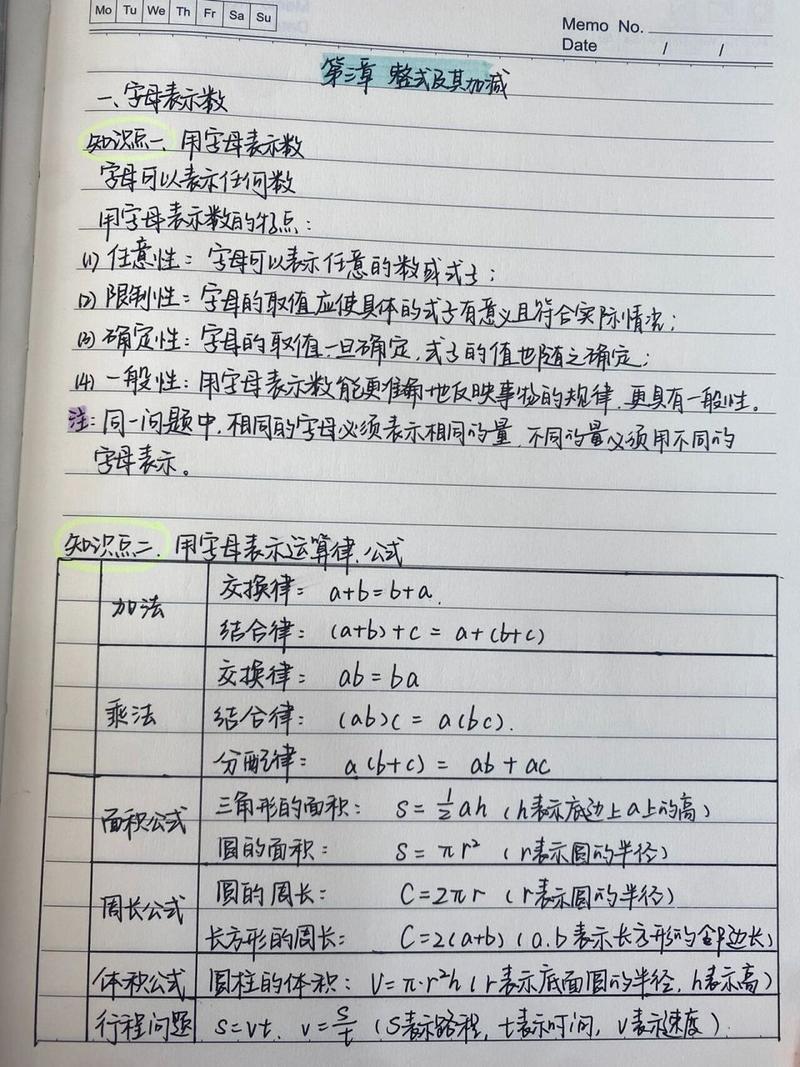 Mo Tu We Th Fr Sa Su
Memo No.
Date / /
第三章 整式及其加减
一、字母表示数
知识点一、用字母表示数
字母可以表示任何数
用字母表示数的特点：
(1) 任意性：字母可以表示任意的数或式子；
(2) 限制性：字母的取值应使具体的式子有意义且符合实际情况；
(3) 确定性：字母的取值一旦确定，式子的值也随之确定；
(4) 一般性：用字母表示数能更准确地反映事物的规律，更具有一般性。
注：同一问题中，相同的字母必须表示相同的量，不同的量必须用不同的
字母表示。
知识点二、用字母表示运算律、公式
加法
交换律： a+b=b+a.
结合律： (a+b)+c = a+(b+c)
乘法
交换律： ab=ba
结合律： (ab)c = a(bc).
分配律： a(b+c) = ab+ac
面积公式
三角形的面积： S=½ah（h表示底边上a上的高）
圆的面积： S=πr²（r表示圆的半径）
周长公式
圆的周长： C=2πr（r表示圆的半径）
长方形的周长： C=2(a+b)（a.b表示长方形的邻边长）
体积公式 圆柱的体积： V=π·r²h（r表示底面圆的半径，h表示高）
行程问题 s=vt、v=s/t（S表示路程，t表示时间，v表示速度）.